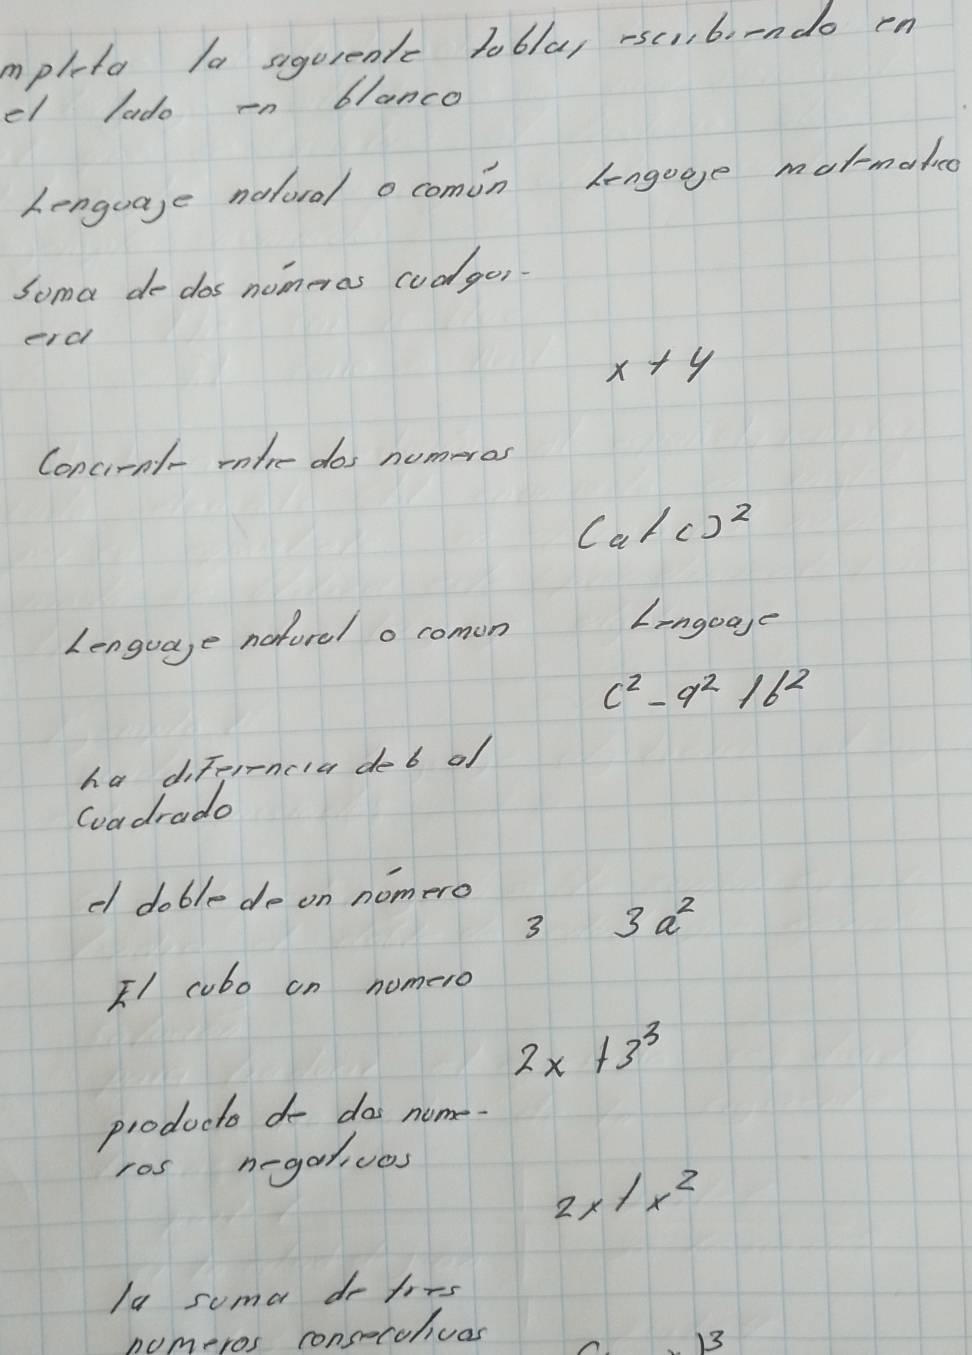 mpleta la siguiente tabla, escribiendo en
el lado en blanco
Lenguaje natural o común Lenguaje matematico
Suma de dos números cualqui-
era
x + y
Conciente entre dos numeros
(a + c)²
Lenguaje natural o comun Lenguaje
c² - a² + b²
La diferencia de b al
cuadrado
el doble de un número
3 3a²
El cubo un numero
2x + 3³
producto de dos nume-
ros negativos
2x + x²
la suma de tres
numeros consecutivos
)³